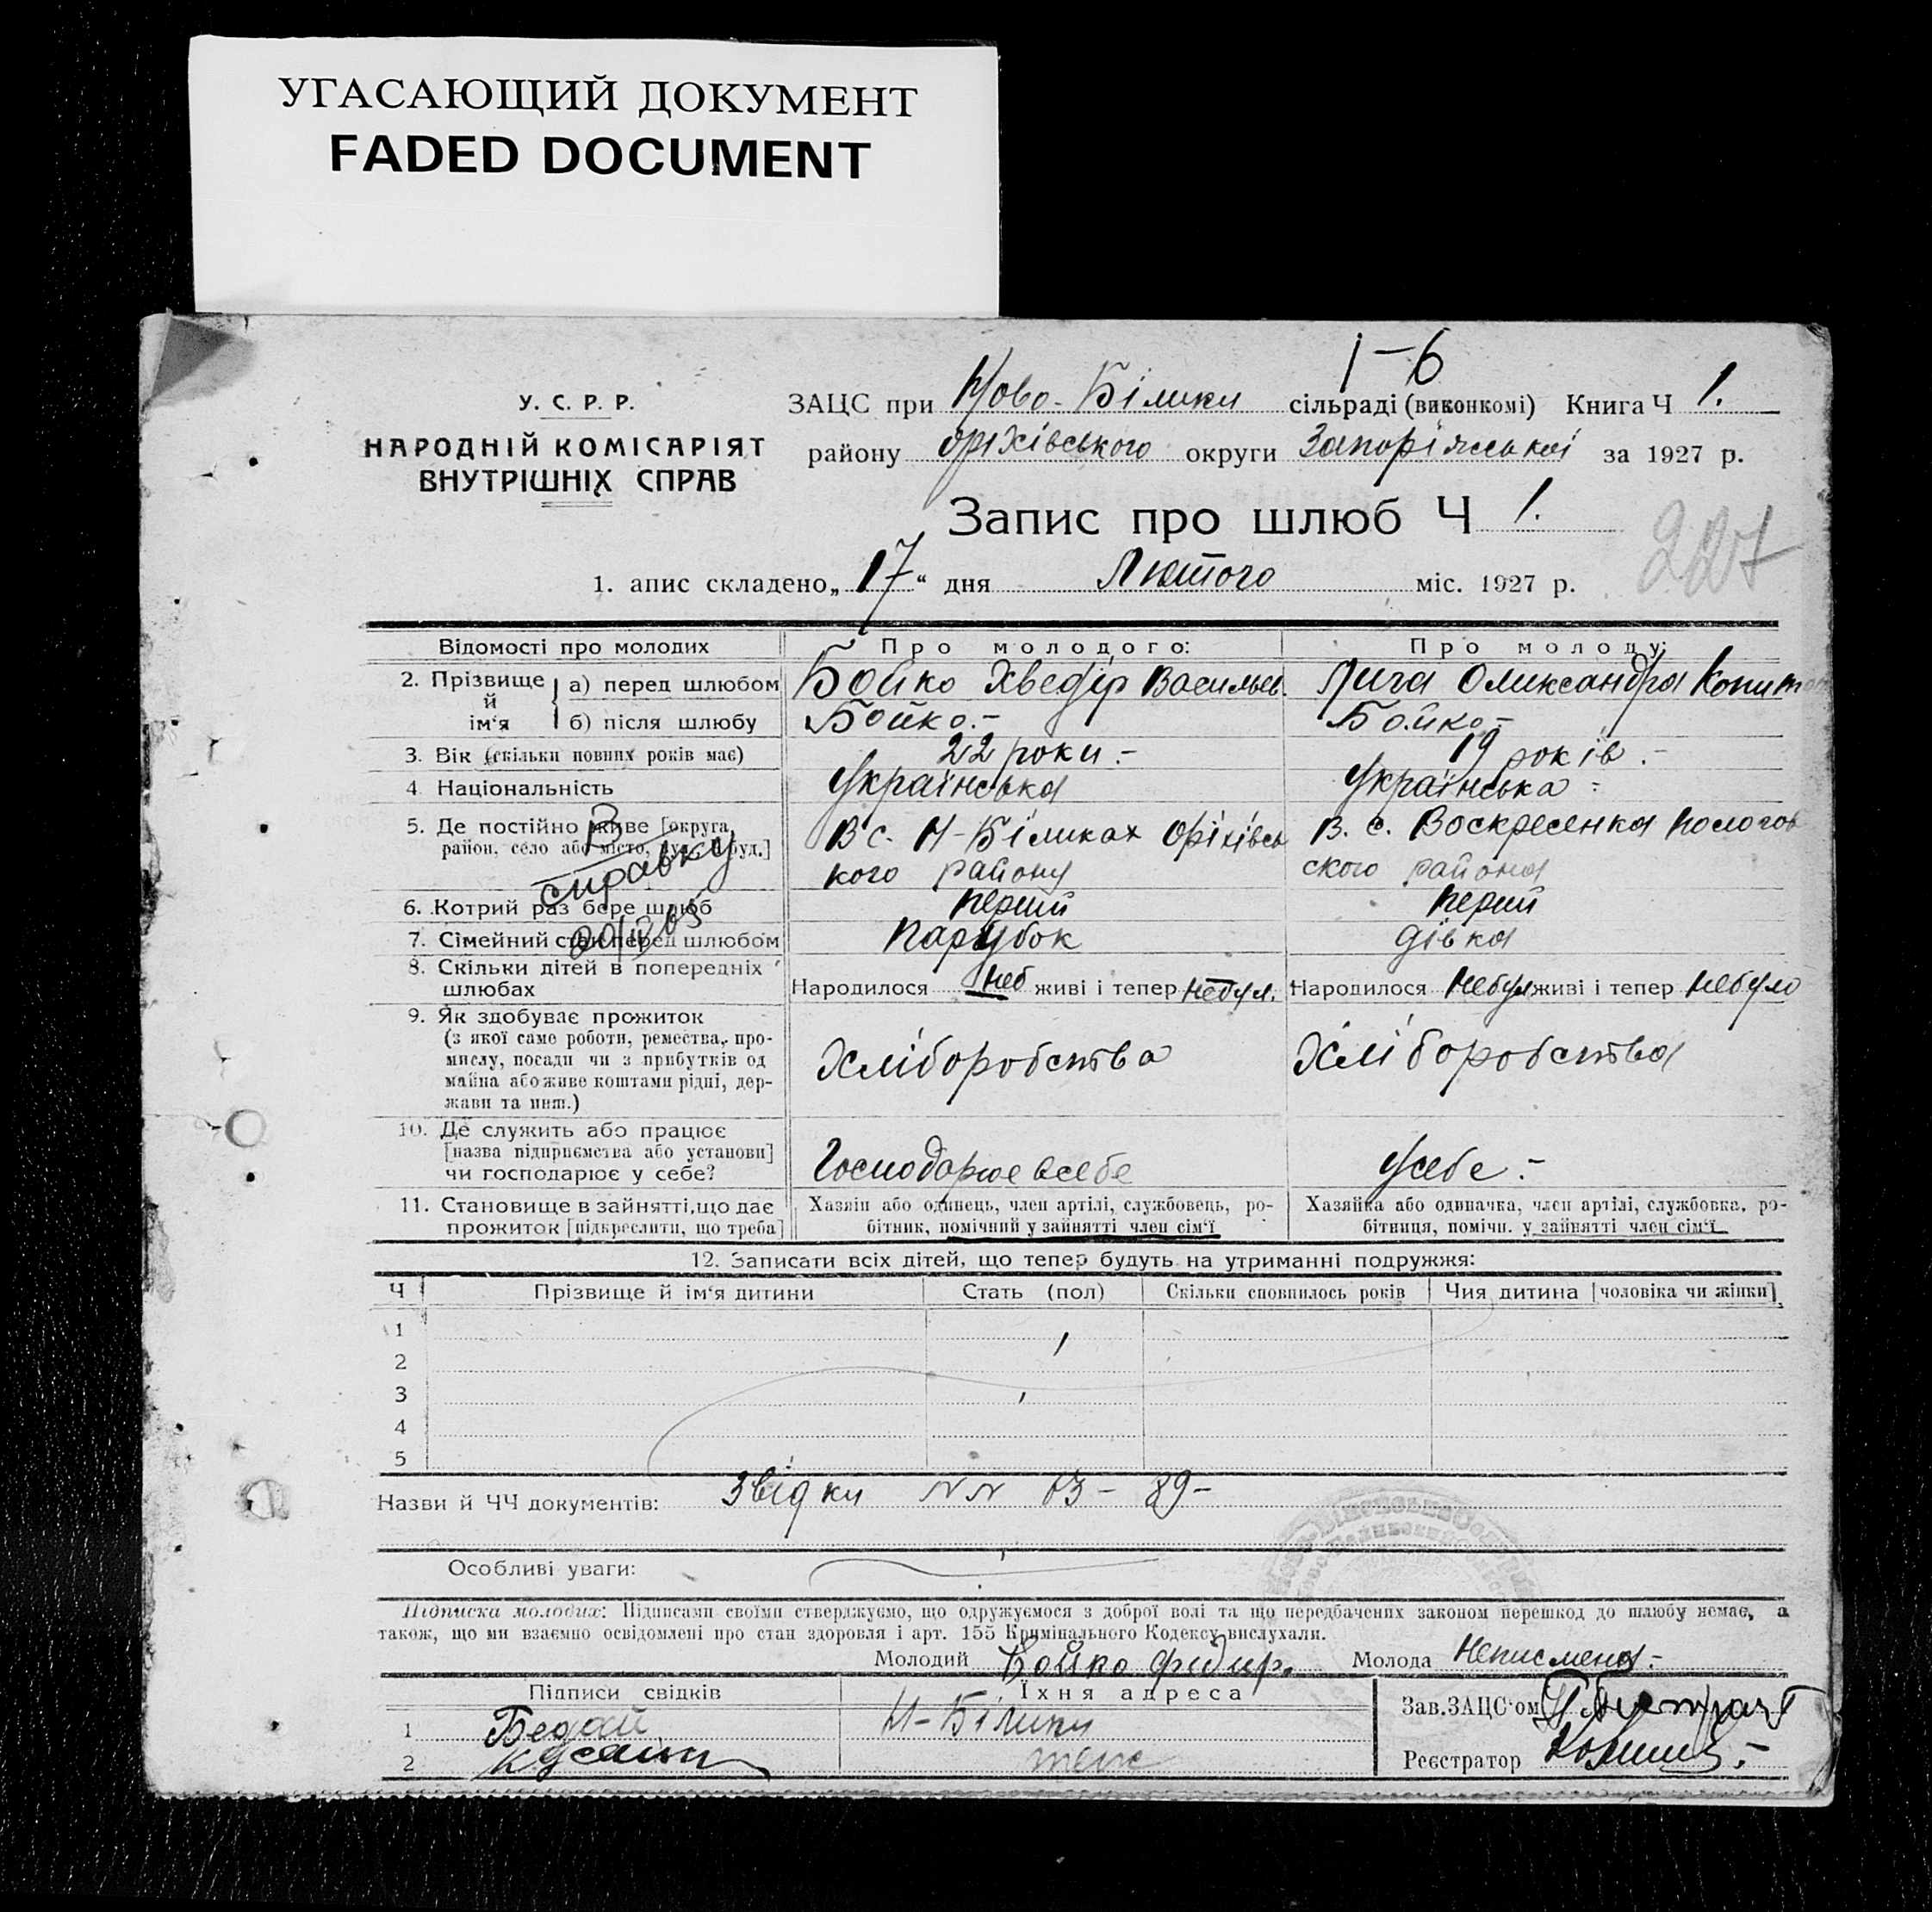 УГАСАЮЩИЙ ДОКУМЕНТ
FADED DOCUMENT
1-6
У. С. Р. Р.
НАРОДНІЙ КОМІСАРІЯТ
ВНУТРІШНІХ СПРАВ
ЗАЦС при Ново-Білики сільраді (виконкомі) Книга Ч 1.
району Оріхівського округи Запоріжської за 1927 р.
Запис про шлюб Ч 1.
227
1. апис складено „17“ дня Лютого міс. 1927 р.
Відомості про молодих Про молодого: Про молоду:
2. Прізвище й ім‘я а) перед шлюбом Бойко Хведір Васильев. Лича Олександра
б) після шлюбу Бойко.- Бойко-
3. Вік (скільки повних років має) 22 роки.- 19 років.-
4. Національність Українська Українська
5. Де постійно живе [округа, В с. Н-Біликах Оріхівсь В. с. Воскресенка Пологов
район, село або місто, вул. й буд.] кого району ского района
В справку
6. Котрий раз бере шлюб перший перший
7. Сімейний стан перед шлюбом Парубок дівка
8. Скільки дітей в попередніх
шлюбах Народилося неб живі і тепер небул. Народилося небул живі і тепер небуло
9. Як здобуває прожиток
(з якої саме роботи, ремества, про-
мислу, посади чи з прибутків од Хліборобства Хліборобства
майна або живе коштами рідні, дер-
жави та инш.)
10. Де служить або працює
[назва підприємства або установи] Господарює всебе Усебе.-
чи господарює у себе?
11. Становище в зайнятті, що дає Хазяїн або одинець, член артілі, службовець, ро- Хазяйка або одиначка, член артілі, службовка, ро-
прожиток [підкреслити, що треба] бітник, помічний у зайнятті член сім‘ї бітниця, помічн. у зайнятті член сім‘ї
12. Записати всіх дітей, що тепер будуть на утриманні подружжя:
Ч Прізвище й ім‘я дитини Стать (пол) Скільки сповнилось років Чия дитина [чоловіка чи жінки]
1
2
3
4
5
Назви й ЧЧ документів: Звідки NN 13- 89-
Особливі уваги:
Підписка молодих: Підписами своїми стверджуємо, що одружуємося з доброї волі та що передбачених законом перешкод до шлюбу немає, а
також, що ми взаємно освідомлені про стан здоровля і арт. 155 Кримінального Кодексу вислухали.
Молодий Бойко Федир. Молода Неписмена.-
Підписи свідків Їхня адреса Зав. ЗАЦС‘ом
1 Бедай Н-Білики
2 теж Реєстратор